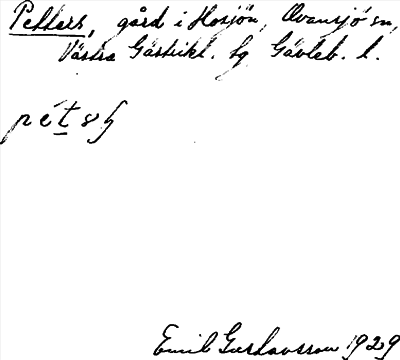 Petters, gård i Hosjön, Ovansjö sn,
Västra Gästrikl. hg Gävleb. l.
Emil Gustavsson 1929